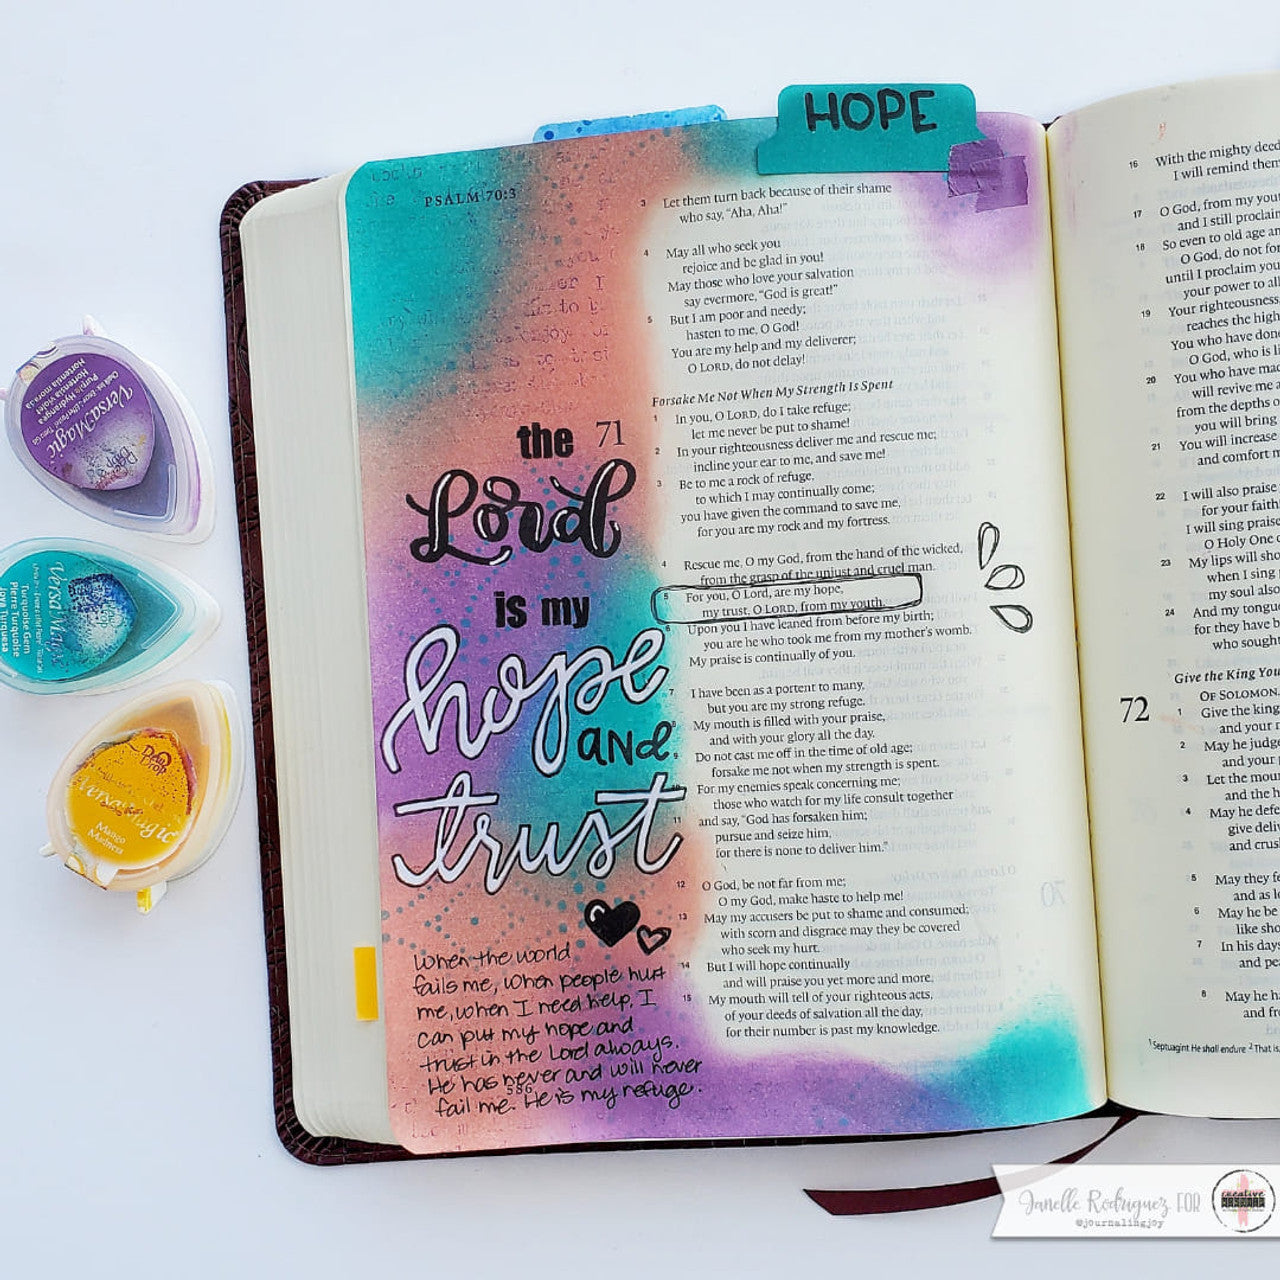 HOPE
PSALM 70:3
3 Let them turn back because of their shame
who say, “Aha, Aha!”
4 May all who seek you
rejoice and be glad in you!
May those who love your salvation
say evermore, “God is great!”
5 But I am poor and needy;
hasten to me, O God!
You are my help and my deliverer;
O LORD, do not delay!
Forsake Me Not When My Strength Is Spent
71
1 In you, O LORD, do I take refuge;
let me never be put to shame!
2 In your righteousness deliver me and rescue me;
incline your ear to me, and save me!
3 Be to me a rock of refuge,
to which I may continually come;
you have given the command to save me,
for you are my rock and my fortress.
4 Rescue me, O my God, from the hand of the wicked,
from the grasp of the unjust and cruel man.
5 For you, O Lord, are my hope,
my trust, O LORD, from my youth.
6 Upon you I have leaned from before my birth;
you are he who took me from my mother's womb.
My praise is continually of you.
7 I have been as a portent to many,
but you are my strong refuge.
8 My mouth is filled with your praise,
and with your glory all the day.
Do not cast me off in the time of old age;
forsake me not when my strength is spent.
10 For my enemies speak concerning me;
those who watch for my life consult together
11 and say, “God has forsaken him;
pursue and seize him,
for there is none to deliver him.”
12 O God, be not far from me;
O my God, make haste to help me!
13 May my accusers be put to shame and consumed;
with scorn and disgrace may they be covered
who seek my hurt.
14 But I will hope continually
and will praise you yet more and more.
15 My mouth will tell of your righteous acts,
of your deeds of salvation all the day,
for their number is past my knowledge.
the
Lord
is my
hope
and
trust
When the world
fails me, when people hurt
me, when I need help, I
can put my hope and
trust in the Lord always.
He has never and will never
fail me. He is my refuge.
586
16 With the mighty deed
I will remind them
17 O God, from my you
and I still proclai
18 So even to old age an
O God, do not for
until I proclaim you
your power to all
19 Your righteousness
reaches the high
You who have done
O God, who is li
20 You who have mad
will revive me a
from the depths o
you will bring
21 You will increase
and comfort m
22 I will also praise
for your faith
I will sing praise
O Holy One o
23 My lips will sho
when I sing
my soul also
24 And my tongu
for they have b
who sough
Give the King You
OF SOLOMON.
72
1 Give the king
and your r
2 May he judge
and your p
3 Let the mou
and the h
4 May he defe
give deliv
and crus
5 May they fe
and as l
6 May he be
like sho
7 In his days
and pea
8 May he ha
and fro
1 Septuagint He shall endure 2 That is,
VersaMagic
Purple Hydrangea
Hortensia violet
Hortensia morada
Versa Magic
Turquoise Gem
Pierre Turquoise
Joya Turquesa
Dew
Drop
VersaMagic
Mango
Madness
Janelle Rodriguez FOR
@journalingjoy
creative